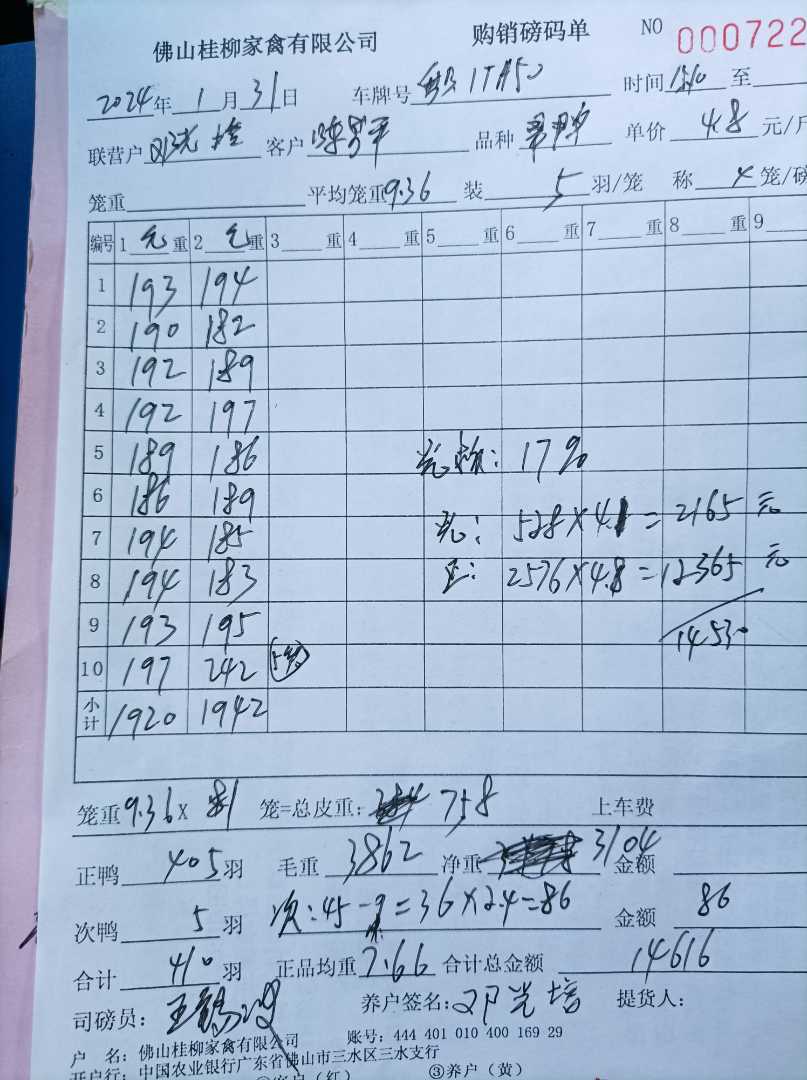 佛山桂柳家禽有限公司 购销磅码单 NO 000722
2024年 1月 31日 车牌号 1TA50 时间 至
联营户 邓光培 客户 品种 单价 4.8 元/斤
笼重 平均笼重 9.36 装 5 羽/笼 称 4 笼/磅
编号 1 重 2 重 3 重 4 重 5 重 6 重 7 重 8 重 9
1 193 194
2 190 182
3 192 189
4 192 197
5 189 186 17%
6 186 189 528×4.1=2165元
7 194 185
8 194 183 正: 2576×4.8=12365元
9 193 195 14530
10 197 242
小计 1920 1942
笼重 9.36× 81 笼=总皮重: 758 上车费
正鸭 405 羽 毛重 3862 净重 3104 金额
次鸭 5 羽 次:45-9=36×2.4=86 金额 86
合计 410 羽 正品均重 7.66 合计总金额 14616
司磅员: 王锡 养户签名: 邓光培 提货人:
户 名: 佛山桂柳家禽有限公司 账号: 444 401 010 400 169 29
开户行: 中国农业银行广东省佛山市三水区三水支行
②客户(红) ③养户(黄)